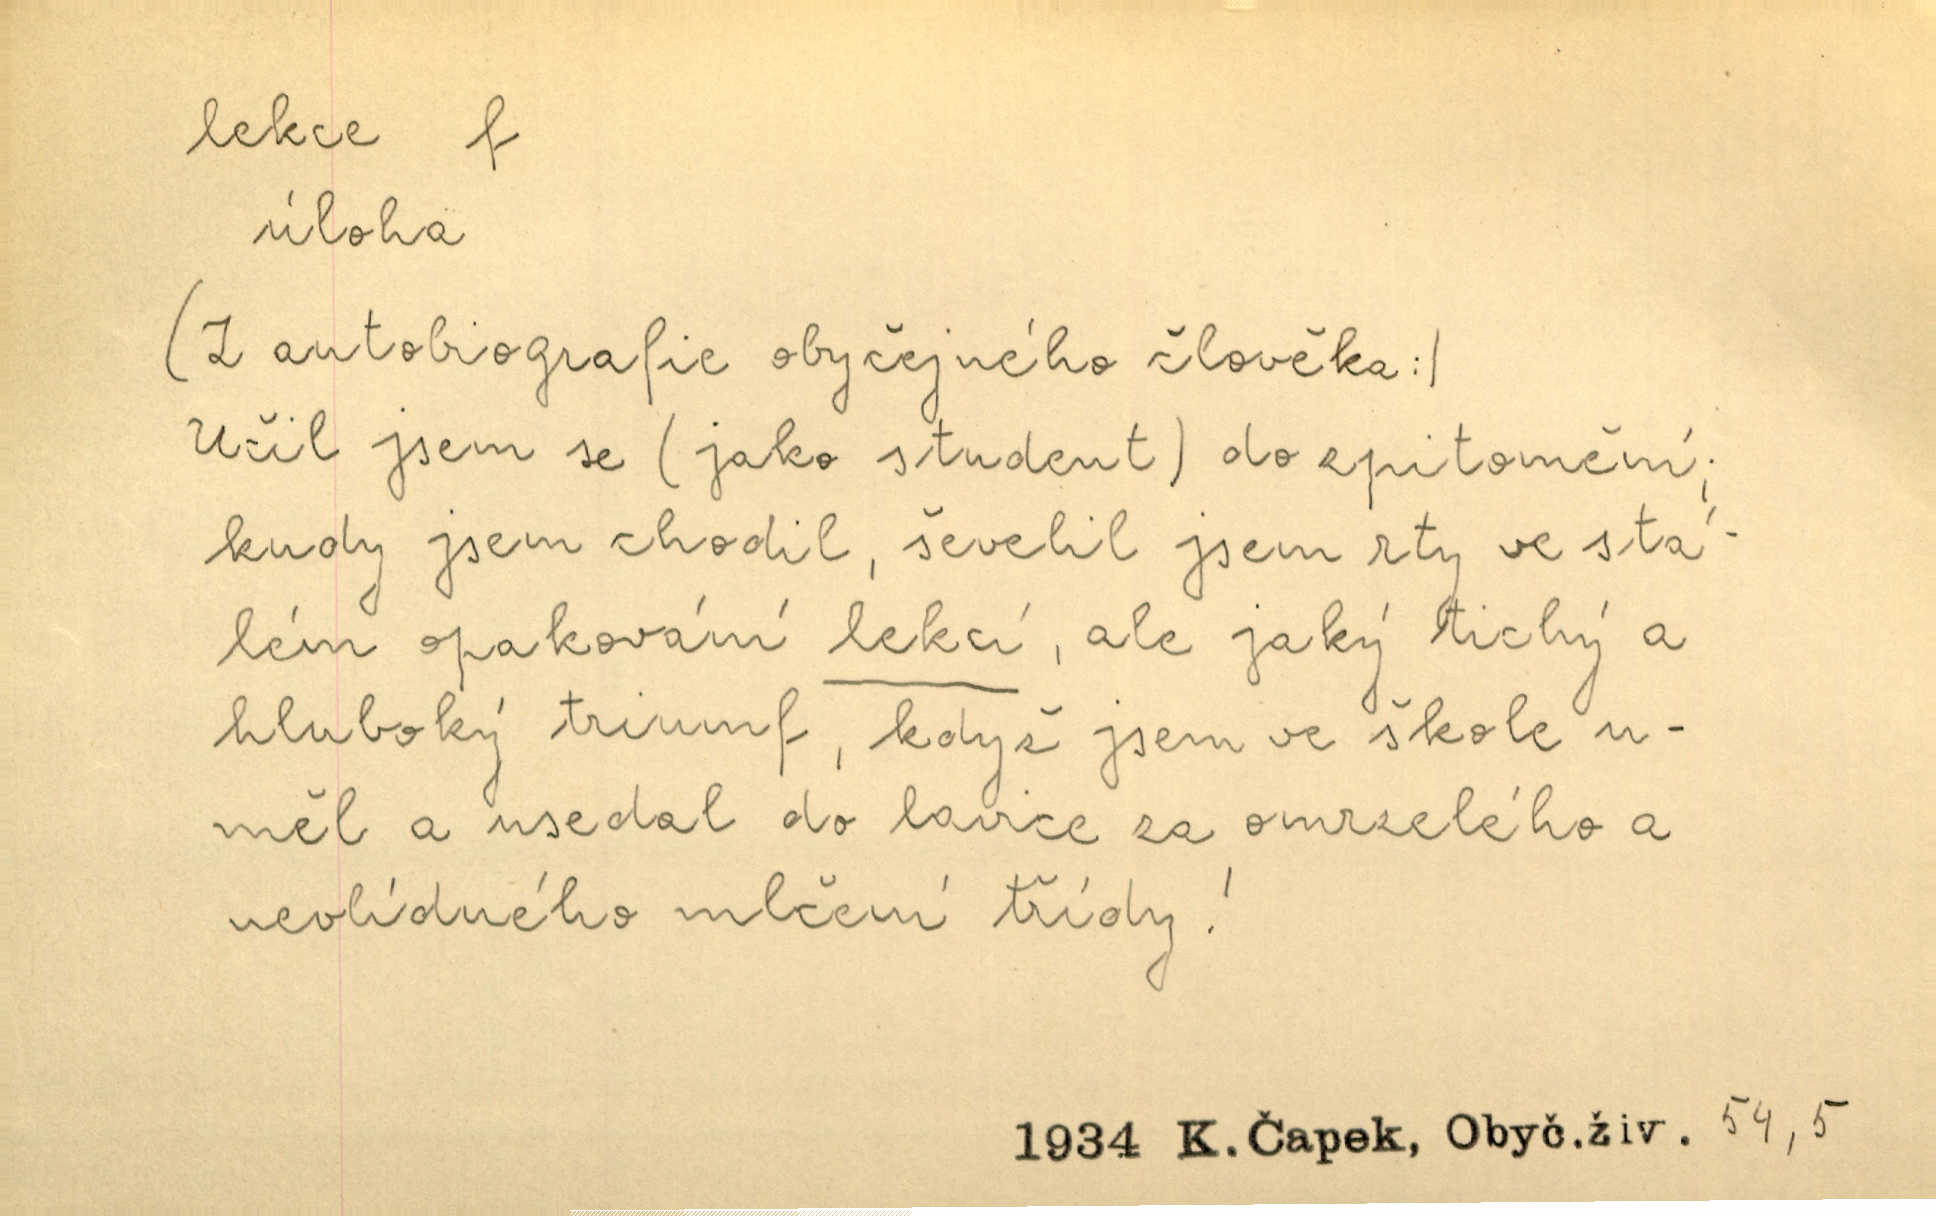 lekce f
úloha
(Z autobiografie obyčejného člověka:)
Učil jsem se (jako student) do zpitomění;
kudy jsem chodil, ševelil jsem rty ve stá-
lém opakování lekcí, ale jaký tichý a
hluboký triumf, když jsem ve škole u-
měl a usedal do lavice za omrzelého a
nevlídného mlčení třídy!
1934 K. Čapek, Obyč.živ. 54,5